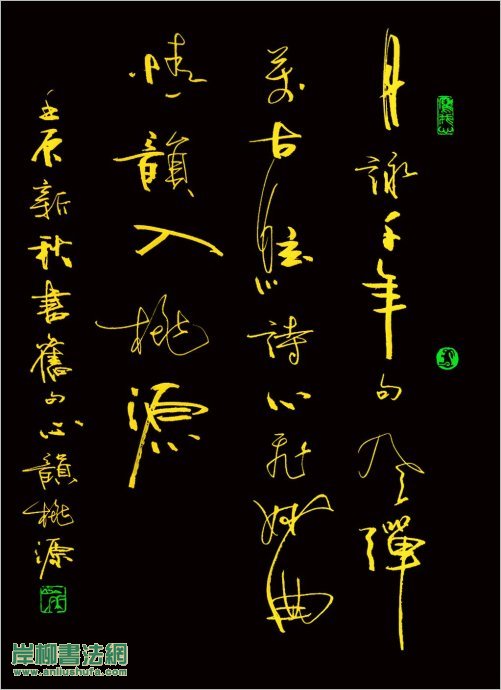 月詠千年句琴彈
萬古詩心飛妙曲
情韻入桃源
壬辰新秋書舊句心韻桃源
岸柳書法網
www.anliushufa.com